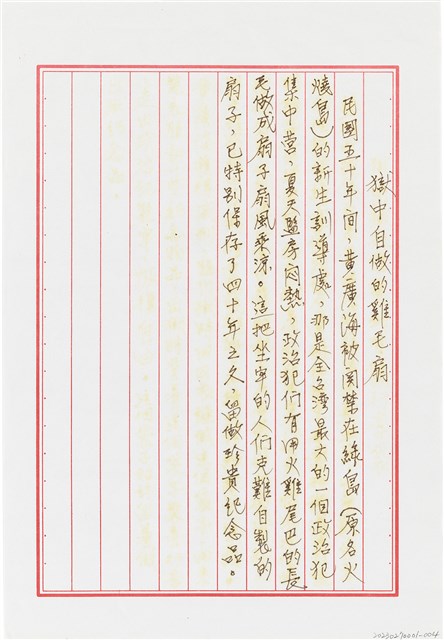 獄中自做的雞毛扇
民國五十年間，黃廣海被関禁在綠島（原名火
燒島）的新生訓導處，那是全台灣最大的一個政治犯
集中營，夏天監房闷熱，政治犯們有用火雞尾巴的長
毛做成扇子扇風乘涼。這把坐牢的人們克難自製的
扇子，已特別保存了四十年之久，留做珍貴紀念品。